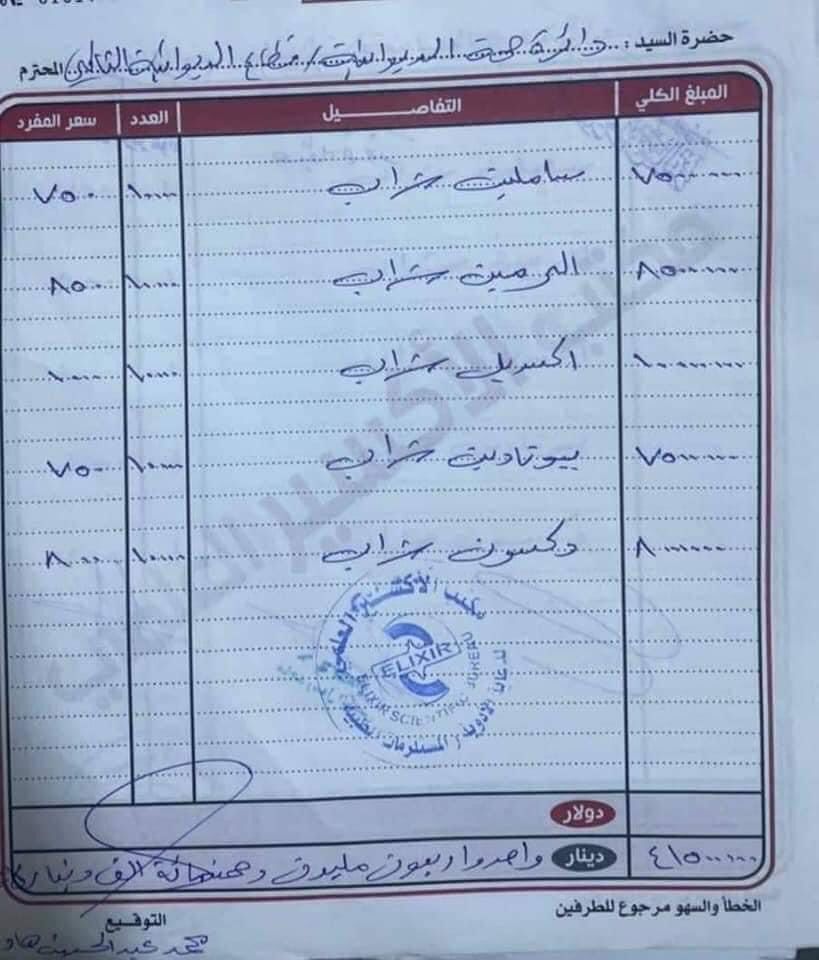 حضرة السيد : دائرة صحة الديوانية / قطاع الديوانية الثاني المحترم
المبلغ الكلي التفاصـــــيل العدد سعر المفرد
٧٥٠٠٠٠٠ شراب ١٠٠٠ ٧٥٠٠
٨٥٠٠٠٠٠ شراب ١٠٠٠ ٨٥٠٠
١٠٠٠٠٠٠٠ اكسبيل شراب ١٠٠٠ ١٠٠٠٠
٧٥٠٠٠٠٠ شراب ١٠٠٠ ٧٥٠٠
٨٠٠٠٠٠٠ دكسون شراب ١٠٠٠ ٨٠٠٠
مكتب الأكسير العلمي
ELIXIR
ELIXIR SCIENTIFIC BUREAU
لدعاية الادوية والمستلزمات الطبية
دولار
٤١٥٠٠٠٠٠ دينار واحد واربعون مليون وخمسمائة الف دينار
الخطأ والسهو مرجوع للطرفين
التوقيع
محمد عبد الحسين